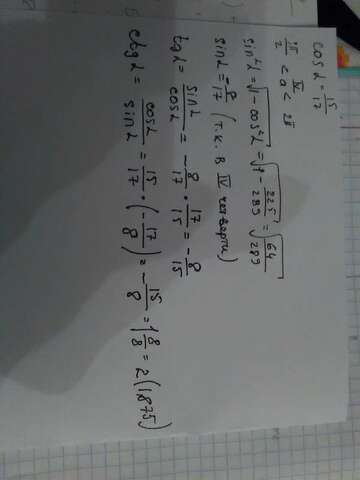 cos α = 15/17
π/2 < α < 2π
IV
sin²α = √1 - cos²α = √1 - 225/289 = √64/289
sin α = -8/17 (т.к. в IV четверти)
tg α = sin α/cos α = -8/17 · 17/15 = -8/15
ctg α = cos α/sin α = 15/17 · (-17/8) = -15/8 = 1 8/8 = 2 (1.875)